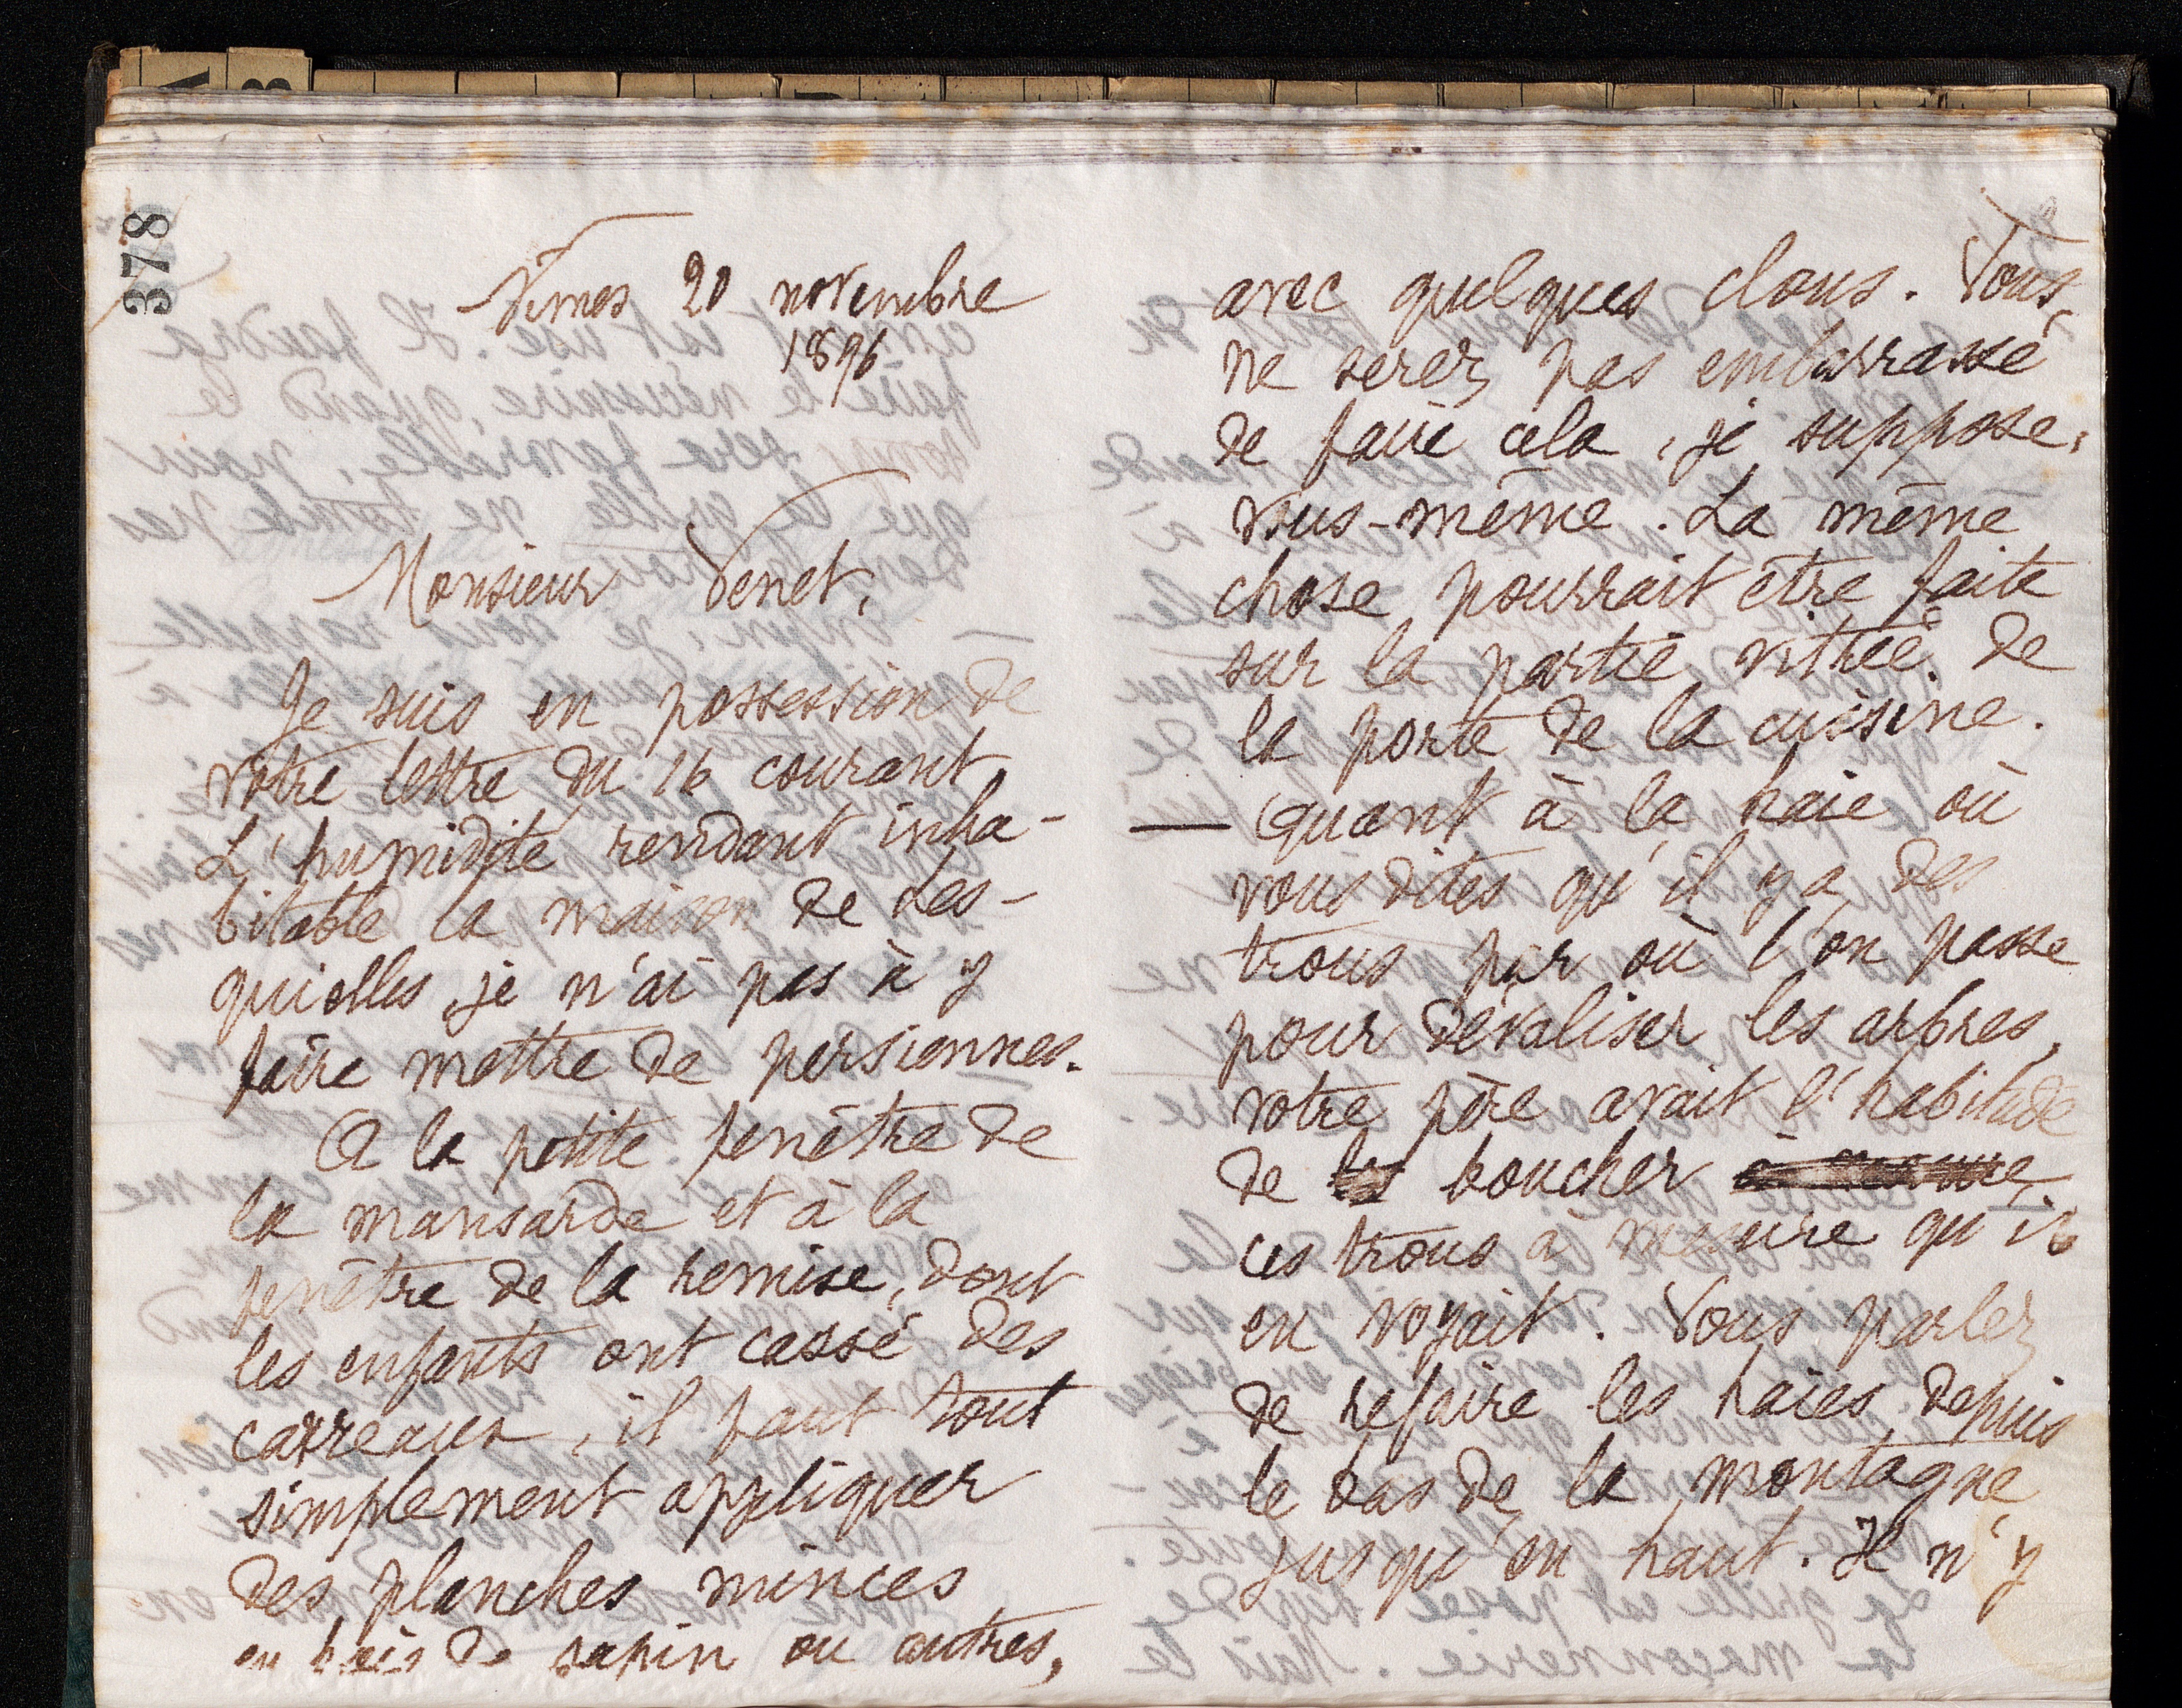 378
Nimes 20 novembre
1896
Monsieur Venet,
Je suis en possession de
votre lettre du 16 courant
L'humidité rendant inha-
bitable la maison de Les-
quielles je n'ai pas à y
faire mettre de persiennes.
A la petite fenêtre de
la mansarde et à la
fenêtre de la remise, dont
les enfants ont cassé des
carreaux, il faut tout
simplement appliquer
des planches minces
en bois de sapin ou autres,
avec quelques clous. Vous
ne serez pas embarrassé
de faire cela, je suppose,
vous-même. La même
chose pourrait être faite
sur la partie vitrée de
la porte de la cuisine.
— Quant à la haie où
vous dites qu'il y a des
trous par où l'on passe
pour dévaliser les arbres,
votre père avait l'habitude
de les boucher à mesure
ces trous à mesure qu'il
en voyait. Vous parlez
de refaire les haies depuis
le bas de la montagne
jusqu'en haut. Il n'y